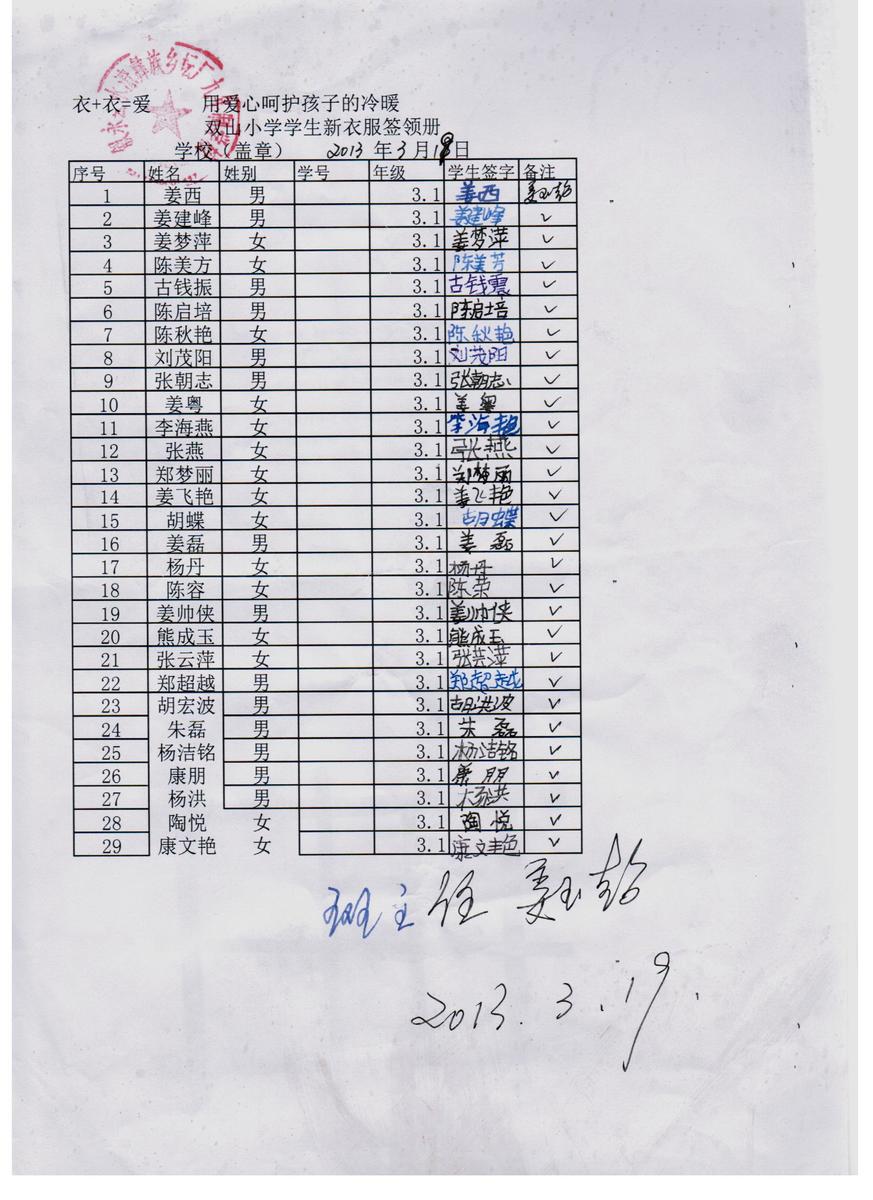 衣+衣=爱 用爱心呵护孩子的冷暖
双山小学学生新衣服签领册
学校（盖章） 2013 年 3 月 19 日
序号 姓名 姓别 学号 年级 学生签字 备注
1 姜西 男 3.1 姜西
2 姜建峰 男 3.1 姜建峰 ✓
3 姜梦萍 女 3.1 姜梦萍 ✓
4 陈美方 女 3.1 陈美芳 ✓
5 古钱振 男 3.1 古钱震 ✓
6 陈启培 男 3.1 陈启培 ✓
7 陈秋艳 女 3.1 陈秋艳 ✓
8 刘茂阳 男 3.1 刘茂阳 ✓
9 张朝志 男 3.1 张朝志 ✓
10 姜粤 女 3.1 姜粤 ✓
11 李海燕 女 3.1 李海艳 ✓
12 张燕 女 3.1 张燕 ✓
13 郑梦丽 女 3.1 郑梦丽 ✓
14 姜飞艳 女 3.1 姜飞艳 ✓
15 胡蝶 女 3.1 胡蝶 ✓
16 姜磊 男 3.1 姜磊 ✓
17 杨丹 女 3.1 杨丹 ✓
18 陈容 女 3.1 陈荣 ✓
19 姜帅侠 男 3.1 姜帅侠 ✓
20 熊成玉 女 3.1 熊成玉 ✓
21 张云萍 女 3.1 张芸萍 ✓
22 郑超越 男 3.1 郑超越 ✓
23 胡宏波 男 3.1 胡洪波 ✓
24 朱磊 男 3.1 朱磊 ✓
25 杨洁铭 男 3.1 杨洁铭 ✓
26 康朋 男 3.1 康朋 ✓
27 杨洪 男 3.1 杨洪 ✓
28 陶悦 女 3.1 陶悦 ✓
29 康文艳 女 3.1 康文艳 ✓
班主任
2013.3.19.